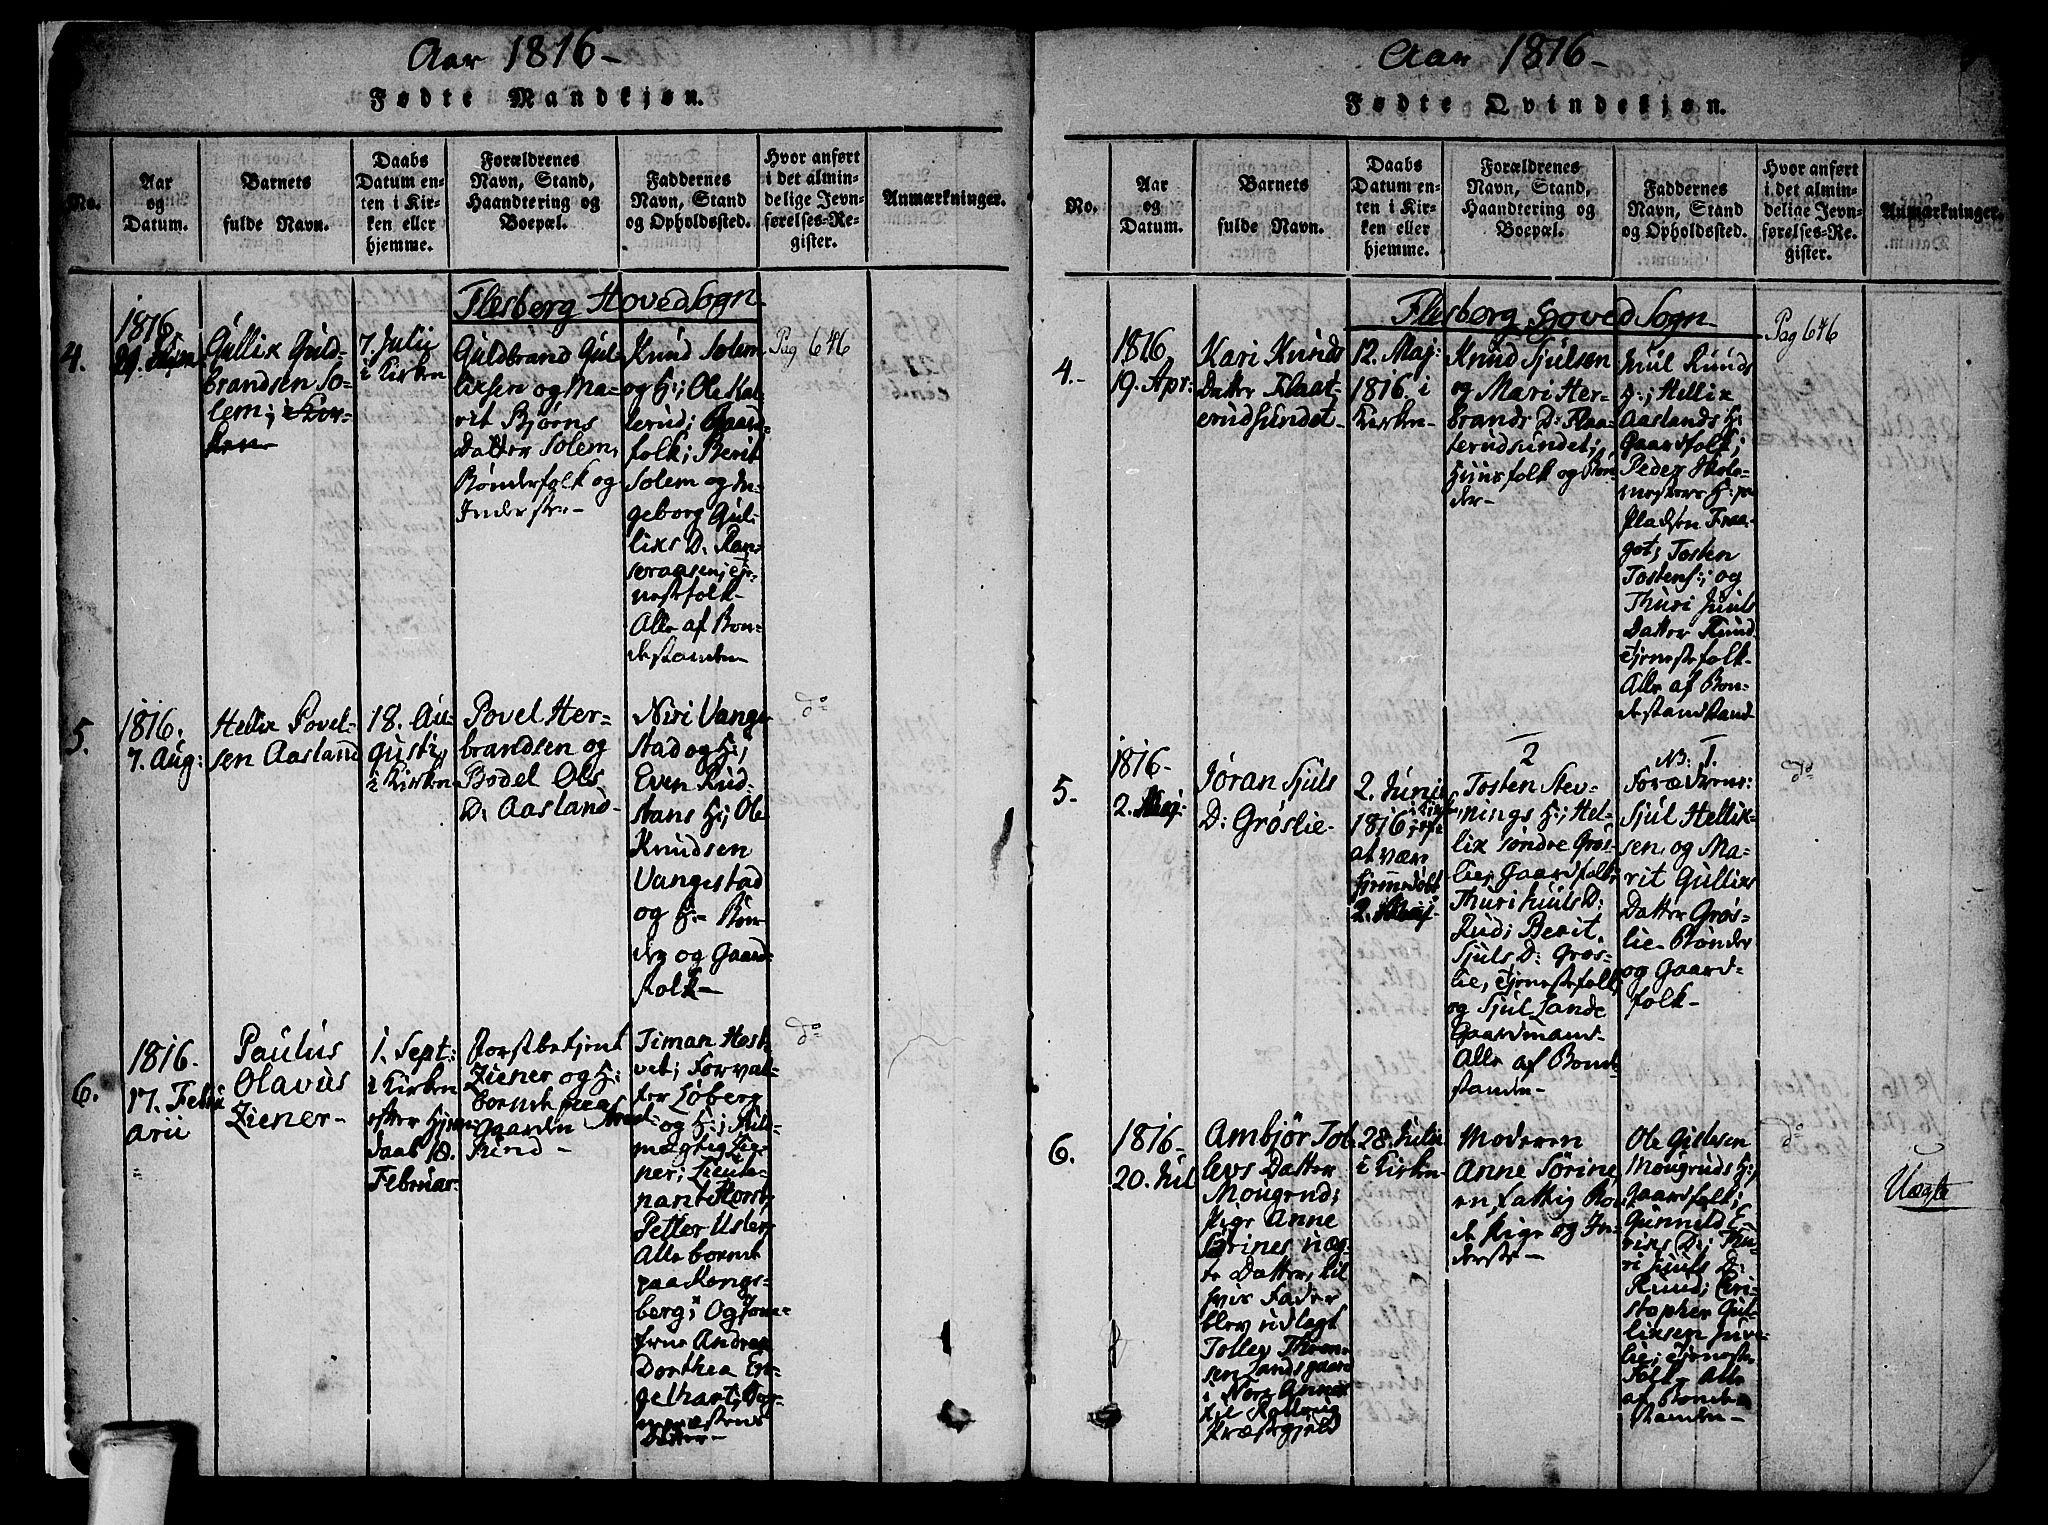 Aar 1816-
Fødte Mandkjøn.
No.
Aar
og
Datum.
Barnets
fulde Navn.
Daabs
Datum en-
ten i Kir-
ken eller
hjemme.
Forældrenes
Navn, Stand,
Haandtering og
Boepæl.
Faddernes
Navn, Stand
og Opholdssted.
Hvor anført
i det almin-
delige Jevn-
førelses-Re-
gister.
Anmærkninger.
Flesberg HovedSogn
4.
1816
Gullix Guld-
brandsen So-
lem;
7. Julii
i Kirken
Guldbrand Gul-
lixsen og Ma-
rit Bjørns
Datter Solem,
Bønderfolk og
Inderster-
Knud Solem
og H:; Ole Kal-
lerud; Gaard-
folk; Berit
Solem og In-
geborg Gul-
lixs D. Ram-
seraasen; Tje-
nestefolk-
Alle af Bon-
destanden
Pag 646
5.
1816.
7. Aug:
Hellix Povel-
sen Aasland
18. Au-
gusti,
i Kirken
Povel Her-
brandsen og
Bodel Ols
D: Aasland-
Niri Vange-
stad og H:;
Even Rud-
stans H:; Ole
Knudsen
Vangestad
og H:- Bøn-
der og Gaard-
folk-
do
6.
1816.
17. Febru
arii
Paulus
Olavus
Ziener-
1. Sept:
i Kirken
efter Hjem-
daab 18.
Februar.
Forstbetjent
Ziener og H:
boende paa
Gaarden
Rind-
Timan Hast-
vet; Forval-
ter Løberg
og H:; Fuld-
mægtig Zie-
ner; Lieute-
nant Horst;
Petter Uster;
Alle boende
paa Kongs-
berg; Og Jom-
frue Andrea
Dorthea En-
gelhart,
Datter-
do
Aar 1816-
Fødte Qvindekjøn.
No.
Aar
og
Datum.
Barnets
fulde Navn.
Daabs
Datum en-
ten i Kir-
ken eller
hjemme.
Forældrenes
Navn, Stand,
Haandtering og
Boepæl.
Faddernes
Navn, Stand
og Opholdssted.
Hvor anført
i det almin-
delige Jevn-
førelses-Re-
gister.
Anmærkninger.
Flesberg HovedSogn
4.-
1816
19. Apr:
Kari Knuds
Datter Flaat-
erudsundet-
12. Maj:
1816 i
Kirken-
Knud Sjulsen
og Mari Her-
brands D: Flaa-
terudsundet;
Huusfolk og Bøn-
der-
Juul Ruuds
H:; Hellix
Aaslands H:
Gaardfolk;
Peder Skole-
mesters H: p.
Pladsen Fraa-
got; Tosten
Tostens:; og
Thuri Juuls
Datter Ruud
Tjenestefolk-
Alle af Bon-
destandstand
Pag 646
5.
1816-
2. Maj:
Jøran Sjuls
D: Grøslie-
2. Junii
1816 i Kirk.
at være
hjemmedøbt
2. Maj-
2
Tosten Stev-
nings H:; Hel-
lix Søndre Grøs-
lie; Gaardfolk;
Thuri Juuls D:
Rud; Berit
Sjuls D: Grøs-
lie, Tjenestefolk,
og Sjul Lande
Gaardmand-
Alle af Bond-
standen-
NB: 1.
Forældrene:
Sjul Hellix-
sen, og Ma-
rit Gullixs
Datter Grøs-
lie- Bønder
og Gaard-
folk-
do
6.
1816-
20. Jul
Ambjør Tol-
levs Datter
Mougrud;
Pige Anne
Sørines uæg-
te Datter, til
hvis Fader
blev udlagt
Tollev Thom-
sen Landsgaard
i Nore Annex
til Rollaug
Præstegjeld
28. Julii
i Kirken-
Moderen
Anne Sørine,
en fattig Bon-
de Pige og In-
derste-
Ole Gislesen
Mougruds H:,
Gaardfolk;
Gunneld E-
rixs D:; Thu-
ri Juuls D:
Ruud; Cri-
stopher Gul-
lixsen Juve-
lie; Tjeneste
Folk- Alle
af Bonde-
standen-
do
Uægte